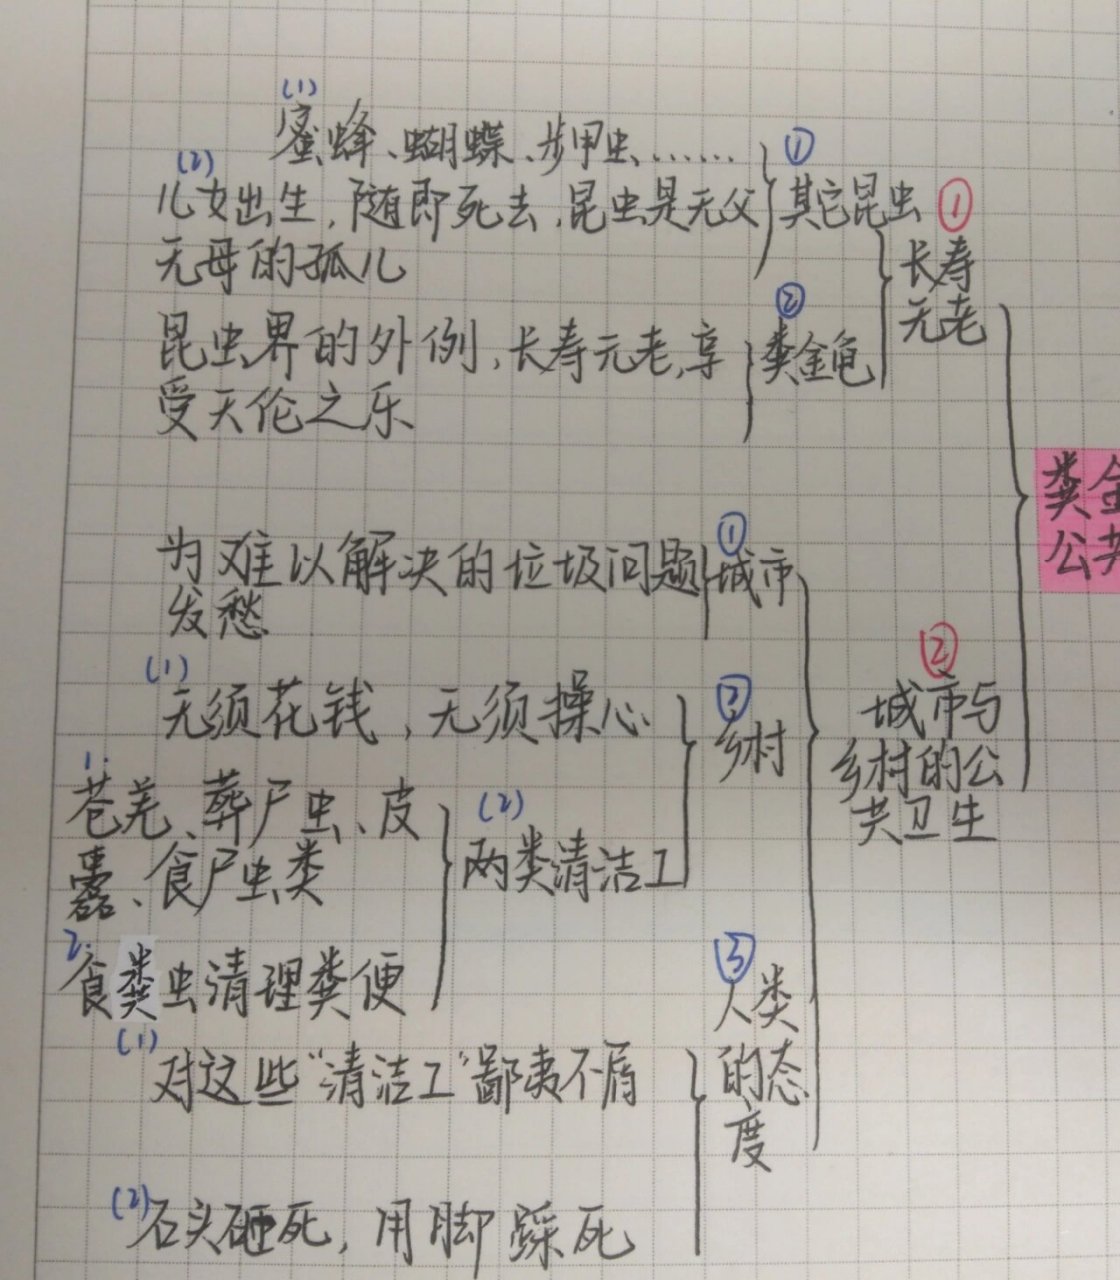 (1)
蜜蜂、蝴蝶、步甲虫、……
①
(2)
儿女出生,随即死去,昆虫是无父
无母的孤儿
其它昆虫
①
长寿
元老
②
昆虫界的外例,长寿元老,享
受天伦之乐
粪金龟
粪金
公共
①
为难以解决的垃圾问题
发愁
城市
②
城市与
乡村的公
共卫生
(1)
无须花钱,无须操心
②
乡村
1.
苍羌、葬尸虫、皮
蠹、食尸虫类
(2)
两类清洁工
2.
食粪虫清理粪便
③
人类
的态
度
(1)
对这些“清洁工”鄙夷不屑
(2)
石头砸死,用脚踩死